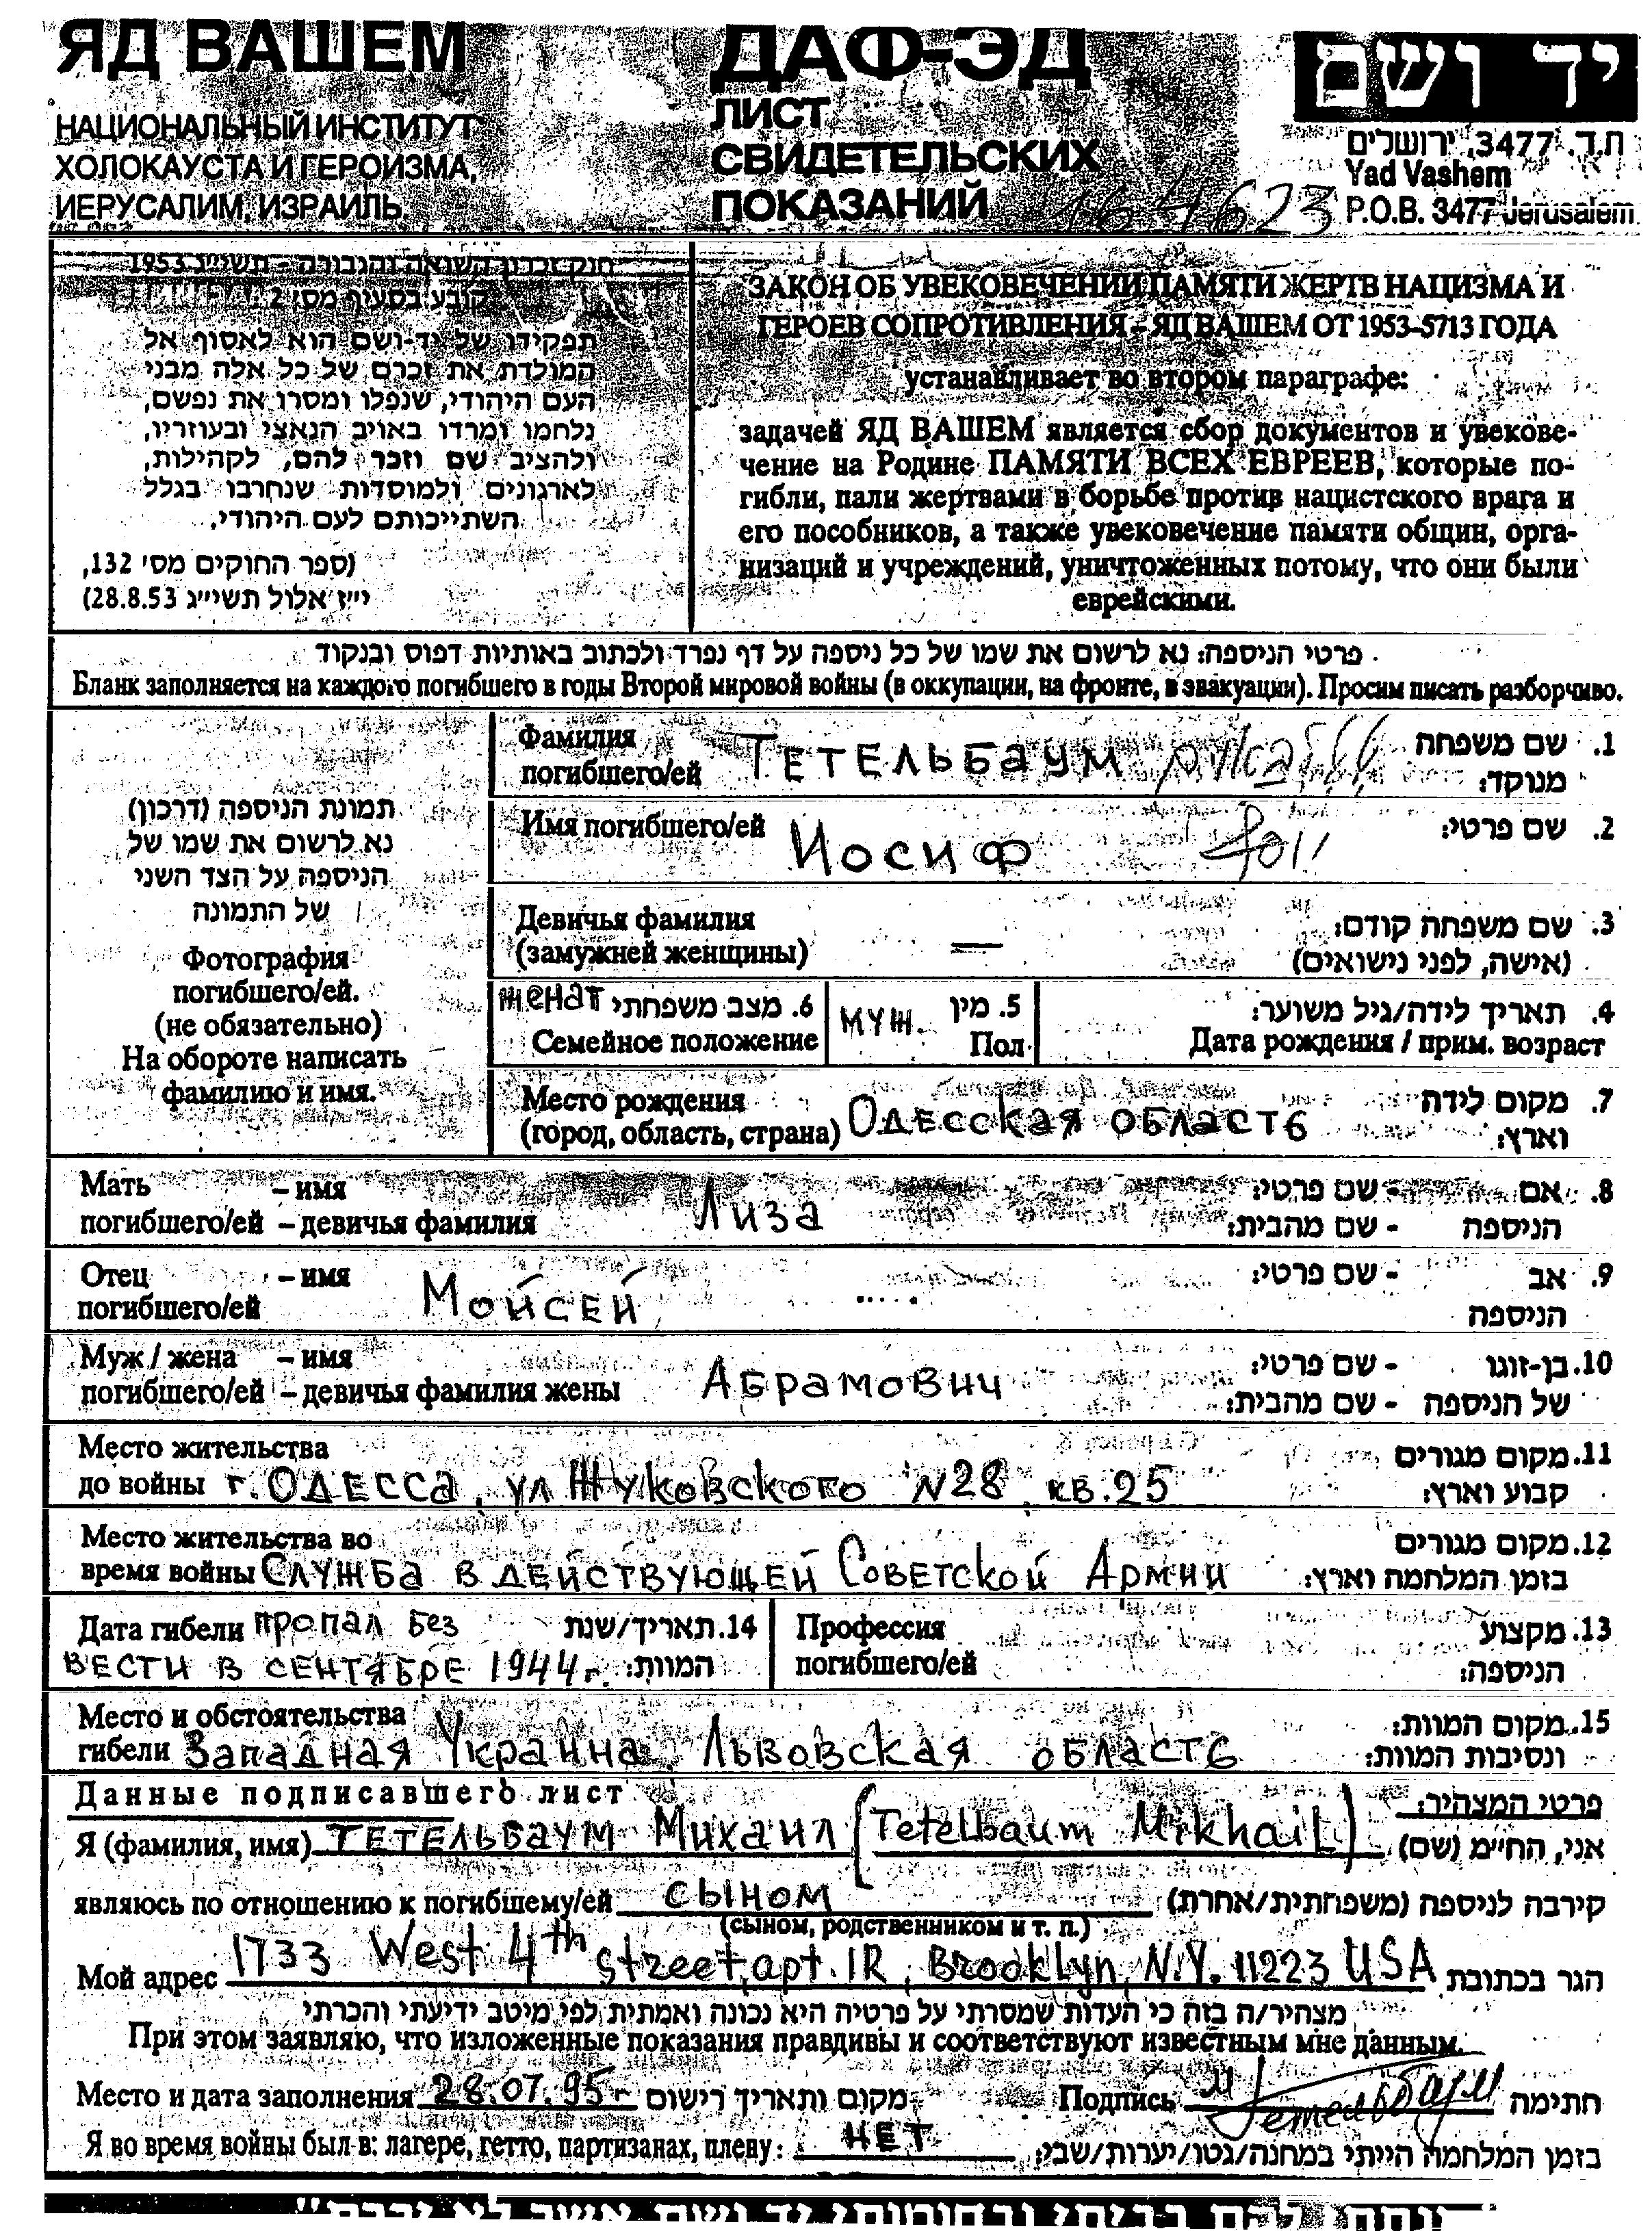 ЯД ВАШЕМ
НАЦИОНАЛЬНЫЙ ИНСТИТУТ
ХОЛОКАУСТА И ГЕРОИЗМА,
ИЕРУСАЛИМ, ИЗРАИЛЬ.
ДАФ-ЭД
ЛИСТ
СВИДЕТЕЛЬСКИХ
ПОКАЗАНИЙ
164623
יד ושם
ת.ד. 3477, ירושלים
Yad Vashem
P.O.B. 3477 Jerusalem
חוק זכרון השואה והגבורה - תשי״ג 1953
קובע בסעיף מס׳ 2
תפקידו של יד-ושם הוא לאסוף אל
המולדת את זכרם של כל אלה מבני
העם היהודי, שנפלו ומסרו את נפשם,
נלחמו ומרדו באויב הנאצי ובעוזריו,
ולהציב שם וזכר להם, לקהילות,
לארגונים ולמוסדות שנחרבו בגלל
השתייכותם לעם היהודי.
(ספר החוקים מס׳ 132,
י״ז אלול תשי״ג 28.8.53)
ЗАКОН ОБ УВЕКОВЕЧЕНИИ ПАМЯТИ ЖЕРТВ НАЦИЗМА И
ГЕРОЕВ СОПРОТИВЛЕНИЯ – ЯД ВАШЕМ ОТ 1953-5713 ГОДА
устанавливает во втором параграфе:
задачей ЯД ВАШЕМ является сбор документов и увекове-
чение на Родине ПАМЯТИ ВСЕХ ЕВРЕЕВ, которые по-
гибли, пали жертвами в борьбе против нацистского врага и
его пособников, а также увековечение памяти общин, орга-
низаций и учреждений, уничтоженных потому, что они были
еврейскими.
פרטי הניספה: נא לרשום את שמו של כל ניספה על דף נפרד ולכתוב באותיות דפוס ובנקוד
Бланк заполняется на каждого погибшего в годы Второй мировой войны (в оккупации, на фронте, в эвакуации). Просим писать разборчиво.
תמונת הניספה (דרכון)
נא לרשום את שמו של
הניספה על הצד השני
של התמונה
Фотография
погибшего/ей.
(не обязательно)
На обороте написать
фамилию и имя.
Фамилия
погибшего/ей ТЕТЕЛЬБАУМ טטלבאום
1. שם משפחה
מנוקד:
Имя погибшего/ей Иосиф יוסף
2. שם פרטי:
Девичья фамилия
(замужней женщины) —
3. שם משפחה קודם:
(אישה, לפני נישואים)
женат 6. מצב משפחתי
Семейное положение
муж. 5. מין
Пол
4. תאריך לידה/גיל משוער:
Дата рождения / прим. возраст
Место рождения
(город, область, страна) Одесская область
7. מקום לידה
וארץ:
Мать – имя
погибшего/ей – девичья фамилия Лиза
8. אם - שם פרטי:
הניספה - שם מהבית:
Отец – имя
погибшего/ей Мойсей
9. אב - שם פרטי:
הניספה
Муж / жена – имя
погибшего/ей – девичья фамилия жены Абрамович
10. בן-זוגו - שם פרטי:
של הניספה - שם מהבית:
Место жительства
до войны г. ОДЕССА, ул Жуковского N28, кв.25
11. מקום מגורים
קבוע וארץ:
Место жительства во
время войны Служба в действующей Советской Армии
12. מקום מגורים
בזמן המלחמה וארץ:
Дата гибели пропал без
вести в сентябре 1944г.
14. תאריך/שנת
המוות:
Профессия
погибшего/ей
13. מקצוע
הניספה:
Место и обстоятельства
гибели Западная Украина, Львовская область
15. מקום המוות:
ונסיבות המוות:
Данные подписавшего лист
פרטי המצהיר:
Я (фамилия, имя) ТЕТЕЛЬБАУМ Михаил (Tetelbaum Mikhail) אני, הח״מ (שם)
являюсь по отношению к погибшему/ей сыном קירבה לניספה (משפחתית/אחרת)
(сыном, родственником и т. п.)
Мой адрес 1733 West 4th street, apt. 1R, Brooklyn, N.Y. 11223 USA הגר בכתובת
מצהיר/ה בזה כי העדות שמסרתי על פרטיה היא נכונה ואמתית לפי מיטב ידיעתי והכרתי
При этом заявляю, что изложенные показания правдивы и соответствуют известным мне данным.
Место и дата заполнения 28.07.95г מקום ותאריך רישום Подпись М Тетельбаум חתימה
Я во время войны был в: лагере, гетто, партизанах, плену: НЕТ בזמן המלחמה הייתי במחנה/גטו/יערות/שבי:
"ונתתי להם בביתי ובחומותי יד ושם אשר לא יכרת"